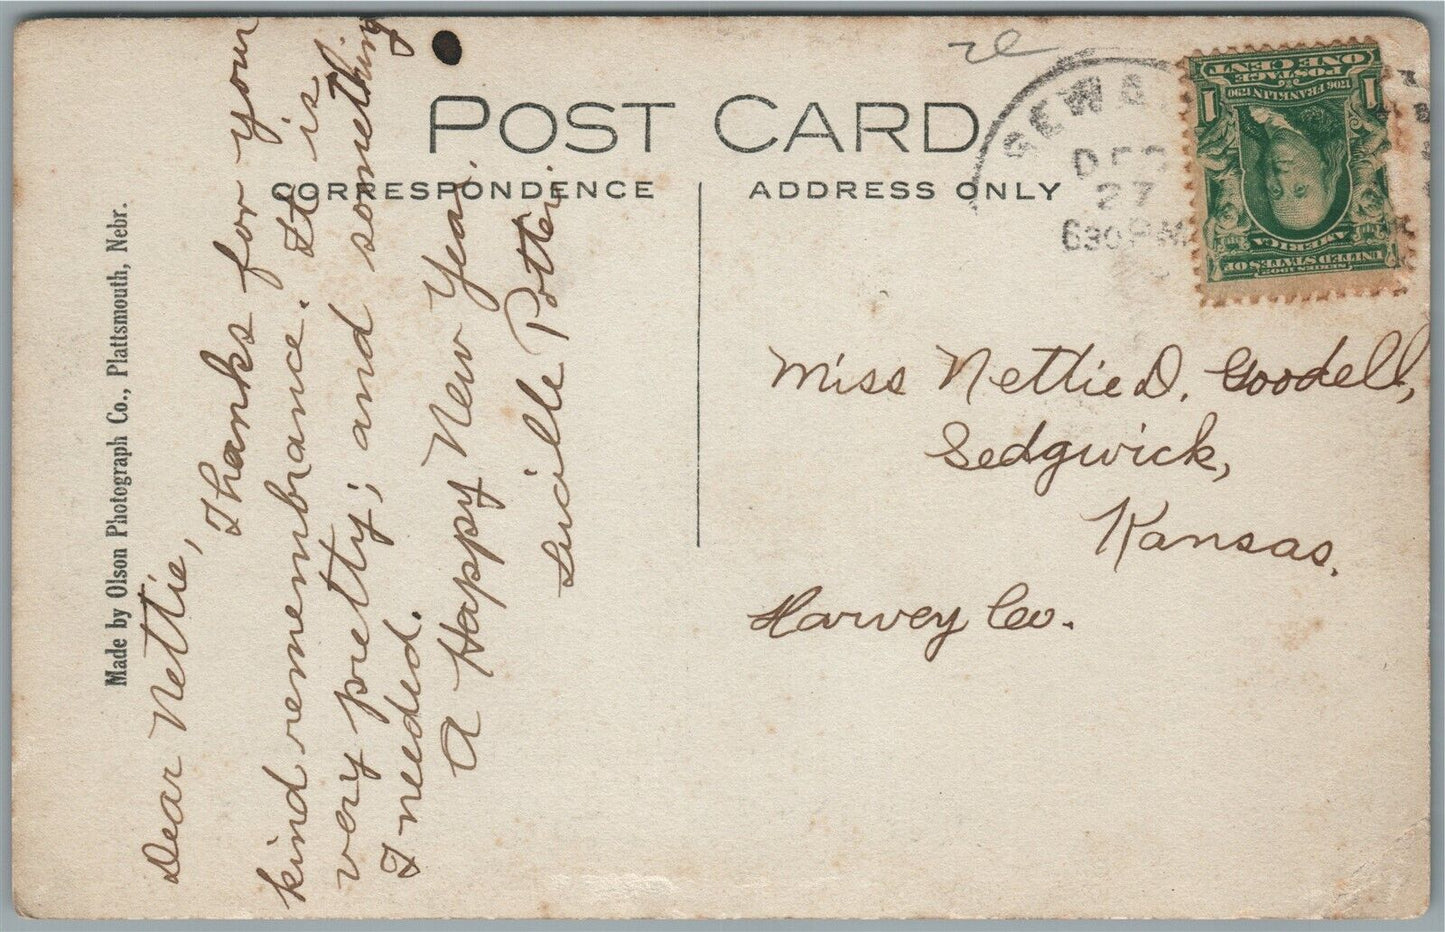 POST CARD
CORRESPONDENCE
ADDRESS ONLY
Made by Olson Photograph Co., Plattsmouth, Nebr.
Dear Nettie,
Thanks for your
kind remembrance. It is
very pretty; and something
I needed.
A Happy New Year.
Lucille Potter.
SEWA
DEC
27
630 PM
ONE CENT
POSTAGE
1706 FRANKLIN 1790
1 1
SERIES 1902
UNITED STATES OF
AMERICA
Miss Nettie D. Goodell,
Sedgwick,
Kansas.
Harvey Co.